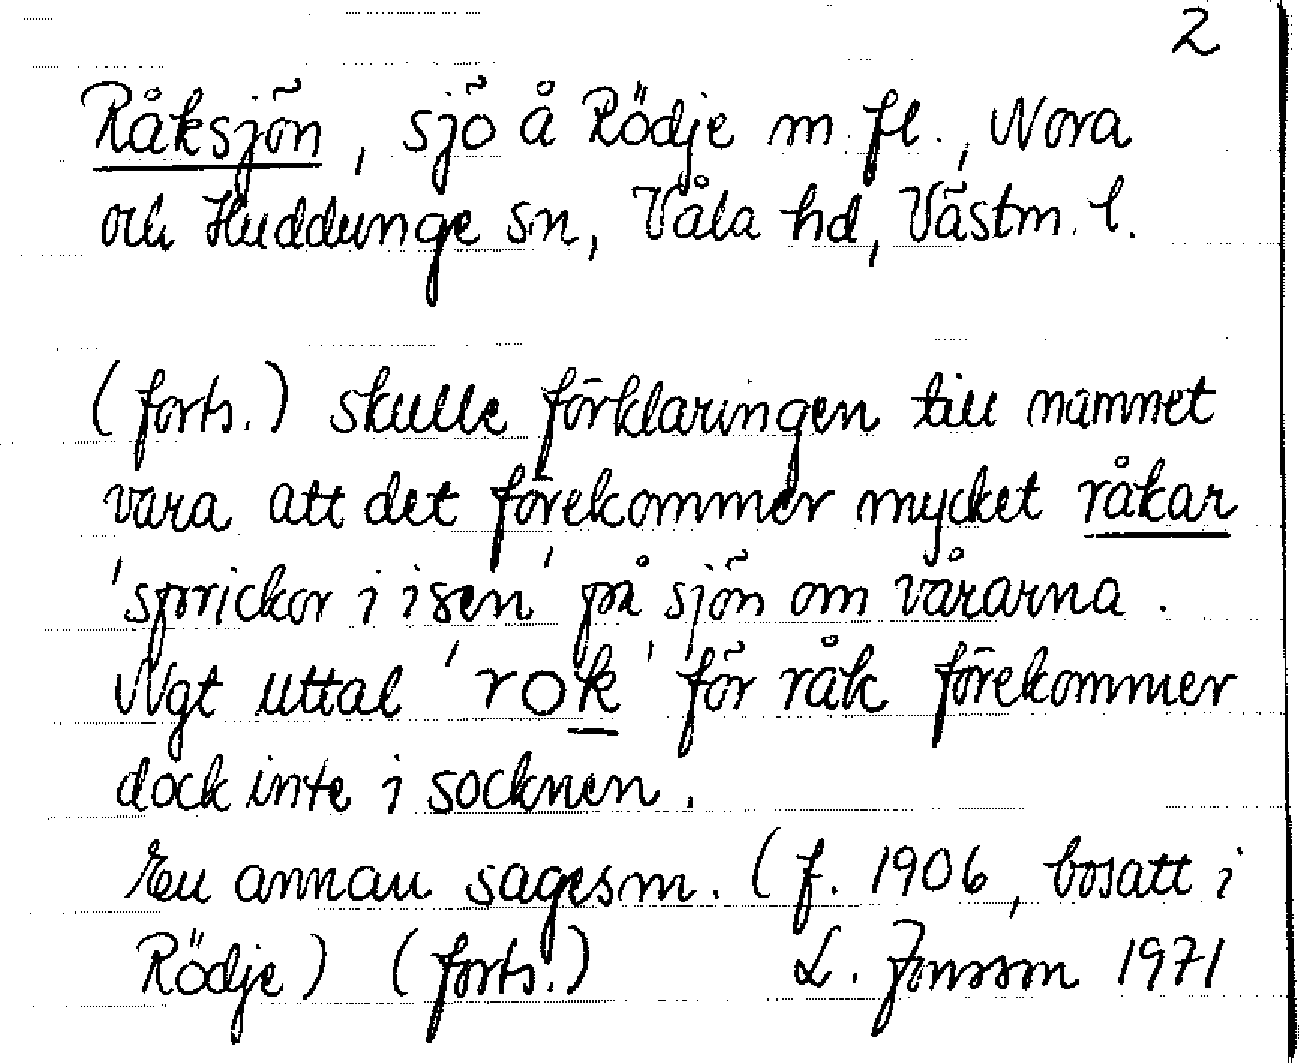 2
Råksjön, sjö å Rödje m. fl., Nora
och Huddunge sn, Våla hd, Västm. l.
(forts.) skulle förklaringen till namnet
vara att det förekommer mycket råkar
'sprickor i isen' på sjön om vårarna.
Ngt uttal 'rok' för råk förekommer
dock inte i socknen.
En annan sagesm. (f. 1906, bosatt i
Rödje) (forts.) L. Jonsson 1971